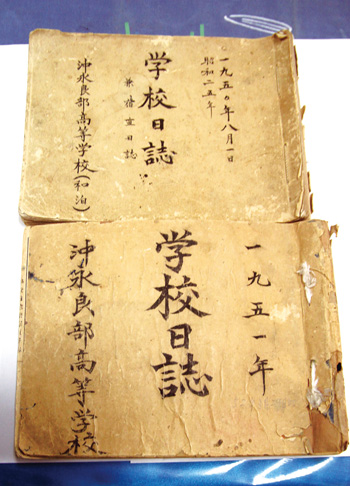 一九五〇年八月一日
昭和二五年
学校日誌
兼宿直日誌
沖永良部高等学校(和泊)
一九五一年
学校日誌
沖永良部高等学校